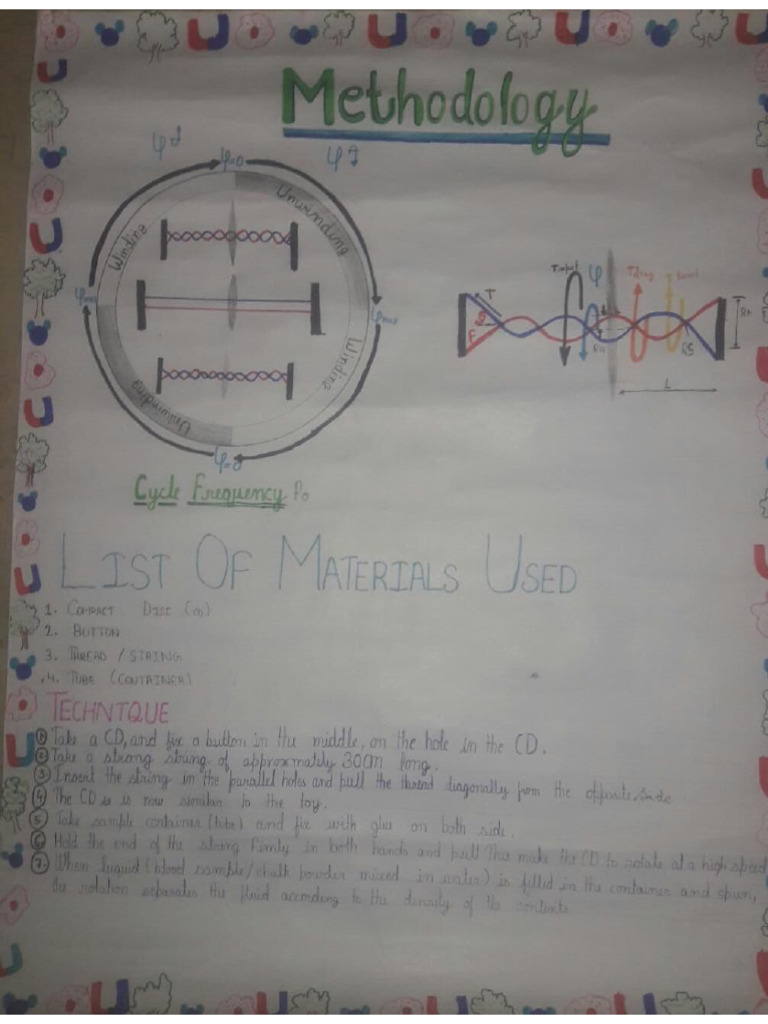 Methodology
φ=0
Unwinding
Winding
φmax
Winding
Unwinding
φ=0
Cycle Frequency
T
F
Tinput
φ
Tdrag
L
LIST OF MATERIALS USED
1. COMPACT DISC
2. BUTTON
3. THREAD / STRING
4. TUBE (CONTAINER)
TECHNTQUE
① Take a CD, and fix a button in the middle, on the hole in the CD.
② Take a strong string of approxmately 300m long.
③ Insert the string in the parallel holes and pull the thread diagonally from the opposite side
④ The CD is now similar to the toy.
⑤ Take sample container (tube) and fix with glue on both side.
⑥ Hold the end of the string firmly in both hands and pull This make the CD to rotate at a high speed
⑦ When liquid (blood sample/chalk powder mixed in water) is filled in the container and spun,
the rotation separates the fluid according to the density of its contents